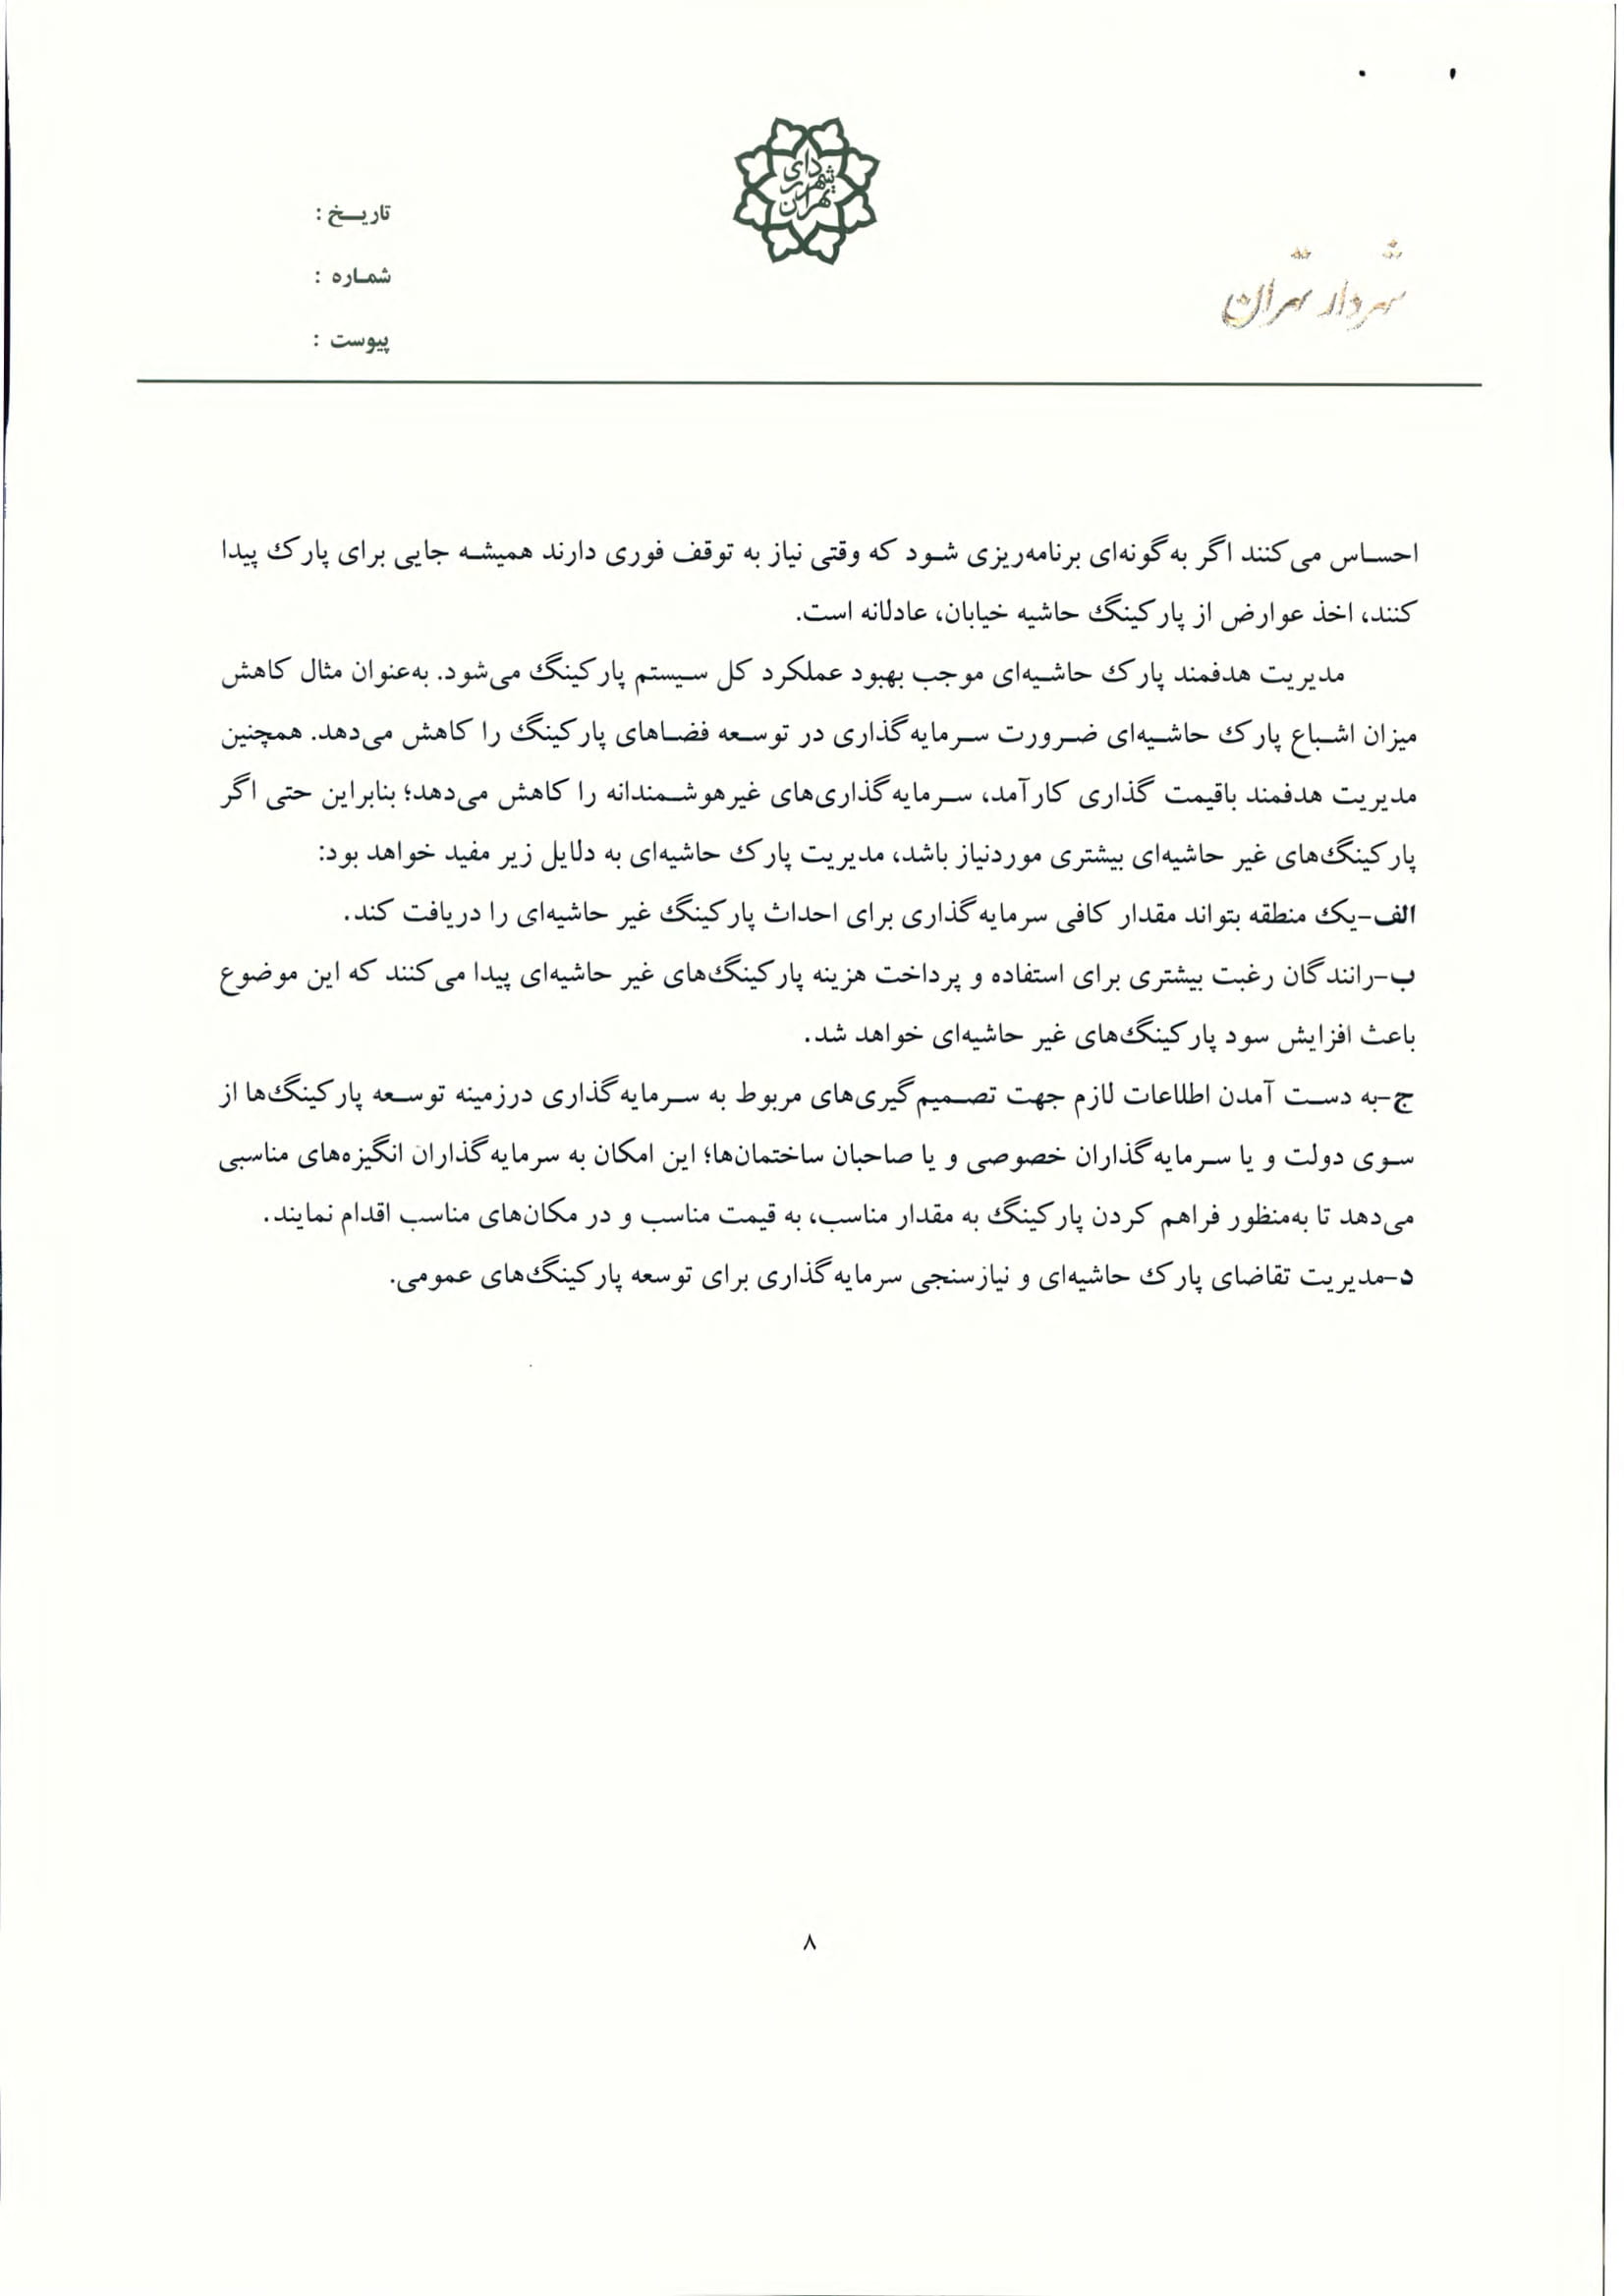 شهرداری تهران
تاریخ :
شماره :
پیوست :
شهردار تهران
احساس می‌کنند اگر به‌گونه‌ای برنامه‌ریزی شود که وقتی نیاز به توقف فوری دارند همیشه جایی برای پارک پیدا
کنند، اخذ عوارض از پارکینگ حاشیه خیابان، عادلانه است.
مدیریت هدفمند پارک حاشیه‌ای موجب بهبود عملکرد کل سیستم پارکینگ می‌شود. به‌عنوان مثال کاهش
میزان اشباع پارک حاشیه‌ای ضرورت سرمایه‌گذاری در توسعه فضاهای پارکینگ را کاهش می‌دهد. همچنین
مدیریت هدفمند باقیمت گذاری کارآمد، سرمایه‌گذاری‌های غیرهوشمندانه را کاهش می‌دهد؛ بنابراین حتی اگر
پارکینگ‌های غیر حاشیه‌ای بیشتری موردنیاز باشد، مدیریت پارک حاشیه‌ای به دلایل زیر مفید خواهد بود:
الف-یک منطقه بتواند مقدار کافی سرمایه‌گذاری برای احداث پارکینگ غیر حاشیه‌ای را دریافت کند.
ب-رانندگان رغبت بیشتری برای استفاده و پرداخت هزینه پارکینگ‌های غیر حاشیه‌ای پیدا می‌کنند که این موضوع
باعث افزایش سود پارکینگ‌های غیر حاشیه‌ای خواهد شد.
ج-به دست آمدن اطلاعات لازم جهت تصمیم‌گیری‌های مربوط به سرمایه‌گذاری درزمینه توسعه پارکینگ‌ها از
سوی دولت و یا سرمایه‌گذاران خصوصی و یا صاحبان ساختمان‌ها؛ این امکان به سرمایه‌گذاران انگیزه‌های مناسبی
می‌دهد تا به‌منظور فراهم کردن پارکینگ به مقدار مناسب، به قیمت مناسب و در مکان‌های مناسب اقدام نمایند.
د-مدیریت تقاضای پارک حاشیه‌ای و نیازسنجی سرمایه‌گذاری برای توسعه پارکینگ‌های عمومی.
۸